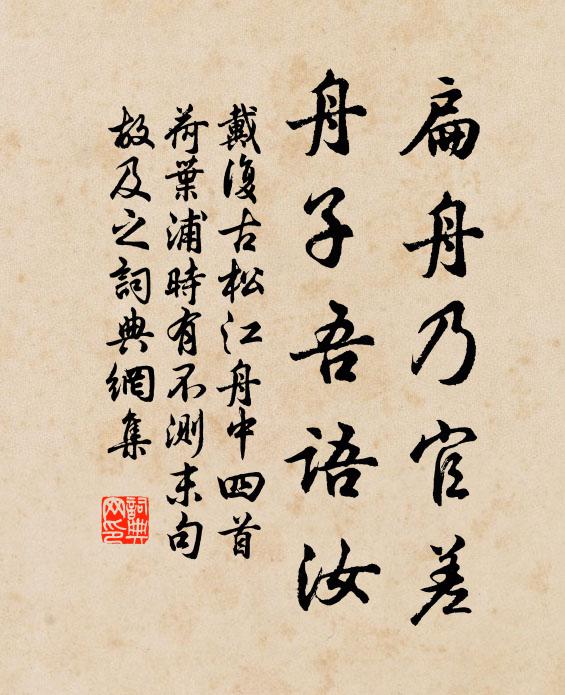 扁舟乃官差
舟子吾語汝
戴復古松江舟中四首
荷葉浦時有不測末句
故及之詞典網集
詞典
网印